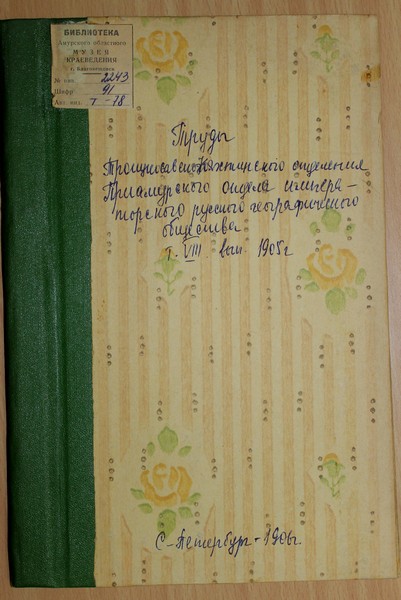 БИБЛИОТЕКА
Амурского областного
МУЗЕЯ
КРАЕВЕДЕНИЯ
г. Благовещенск
№ инв. 2243
Шифр 91
Авт. зн. Т-78
Труды
Троицкосавско-Кяхтинского отделения
Приамурского отдела импера-
торского русского географического
общества
т. VIII вып. 1905 г
С-Петербург-1906г.